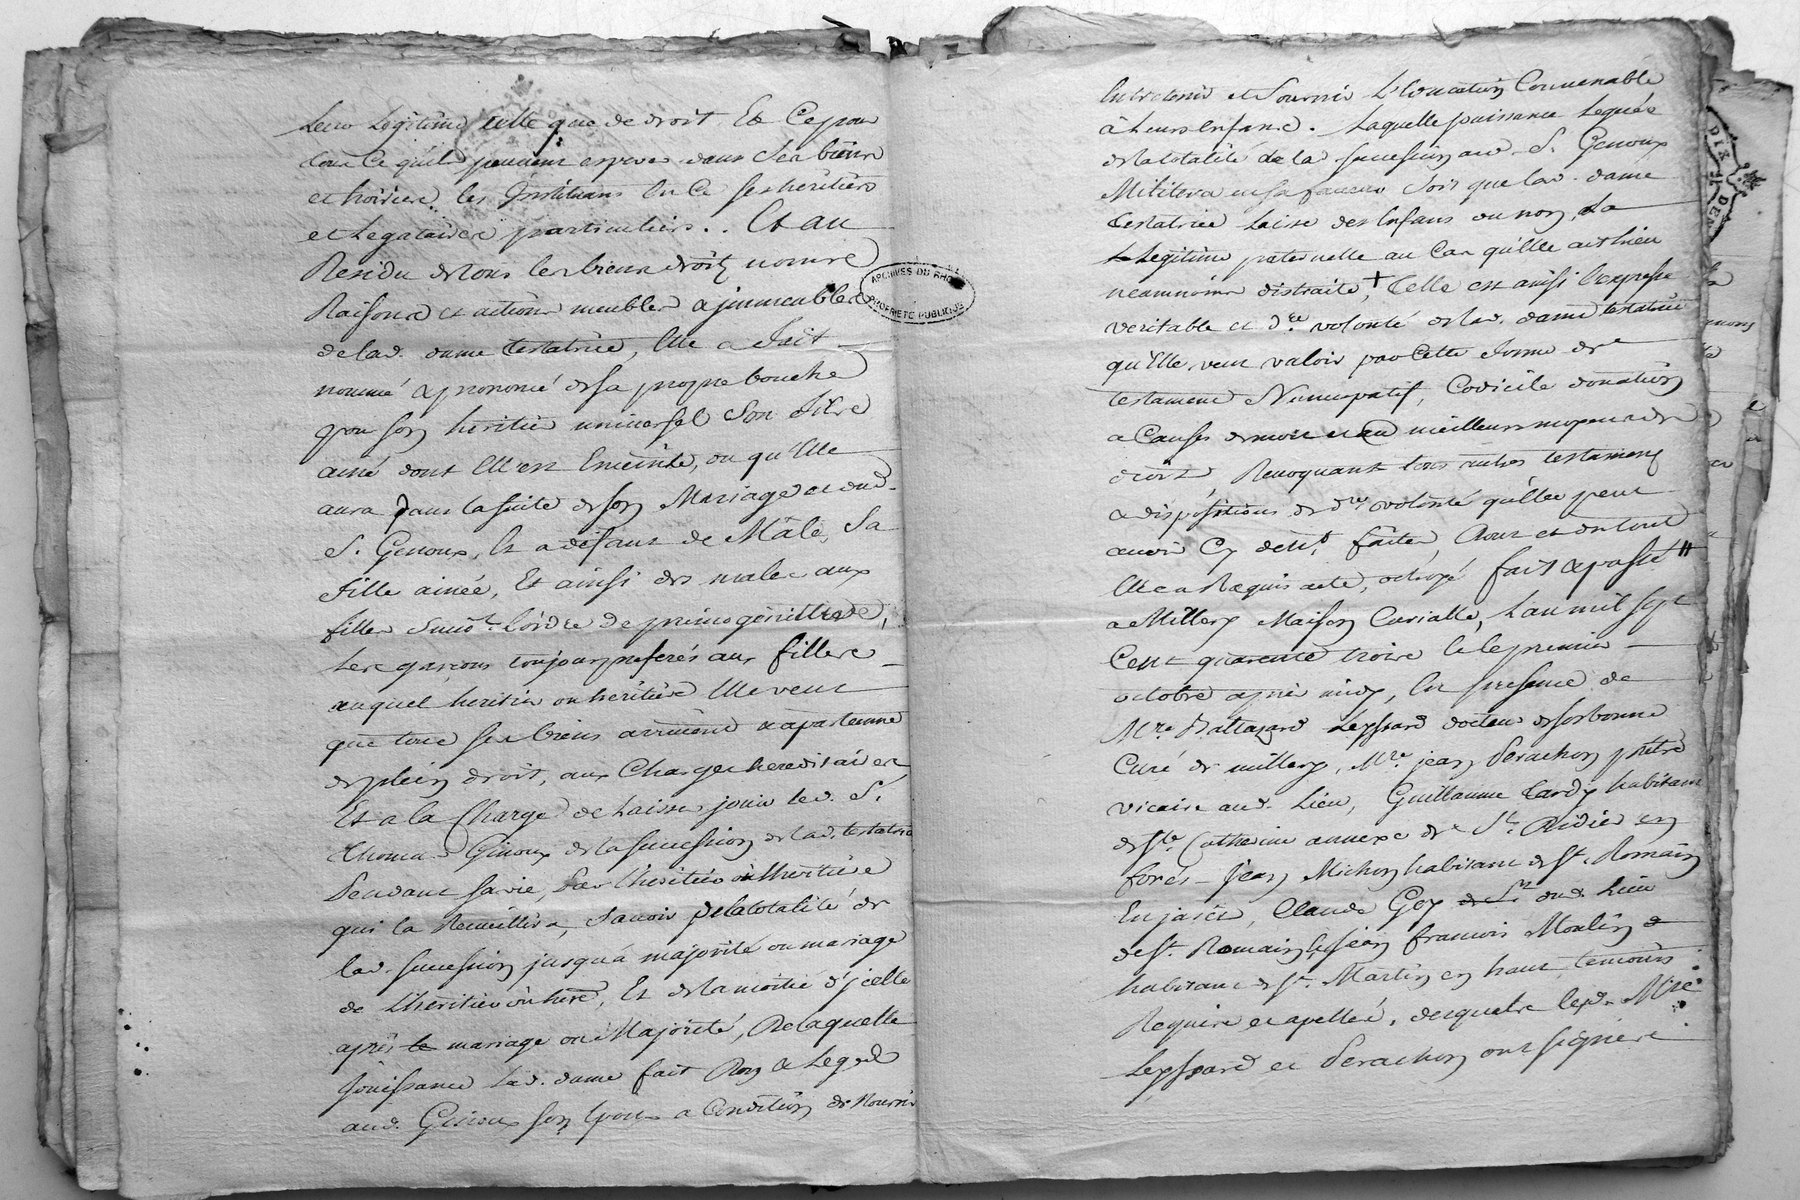 Leur Légitime telle que de droit, Et Ce pour
tout Ce qu'ils peuvent esperer dans Ses biens
et hoirie, les Instituans En Ce Ses héritiers
et Légataires particuliers.. Et au
Residu de tous les biens droits noms
Raisons et actions meubles & jmmeubles
de lad. dame testatrice, Elle a fait
nommé & prononcé de Sa propre bouche
pour Son héritier universel Son fils
ainé dont Elle est Enceinte, ou qu'Elle
aura dans la Suite de Son Mariage avec led.
S. Genoux, Et a défaut de Mâle, Sa
fille ainée, Et ainsi des males aux
filles Suivt. L'ordre de primogeniture,
Les garçons toujours preferés aux filles
auquel heritier ou héritière Elle veut
que tous Ses biens arrivent & apartienne
de plein droit, aux Charges hereditaires,
Et a la Charge de Laisser jouir led. S.
Thomas Genoux de la Succession de lad. testatrice
Pendant Sa vie, Par L'heritier ou L'heritière
qui la Recueillira, Savoir de la totalité de
lad. Succession jusqu'a majorité ou mariage
de L'heritier ou here, Et de la moitié d'jcelle
après le mariage ou Majorité, De laquelle
Jouissance Lad. dame fait Don & Legs
aud. Genoux Son Epoux a Condition de Nourrir
Entretenir et Fournir L'Education Convenable
à Leurs Enfans. Laquelle jouissance Leguée
de la totalité de la Succession aud. S. Genoux
Militera en Sa faveur Soit que lad. dame
testatrice Laisse des Enfans ou non, La
Legitime paternelle au Cas qu'Elle ait Lieu
neanmoins distraite, + Telle est ainsi L'expresse
veritable et dre. volonté de lad. dame testatrice
qu'Elle veut valoir par Cette forme de
testament Nuncupatif, Codicile donation
a Cause de mort et au meilleurs moyens de
droit, Revoquant tous autres testamens
& dispositions de dre. volonté qu'Elle peut
avoir Cy devt. faites, Dont et du tout
Elle a Requis acte, octroyé fait & passé "
a Millery Maison Curialle, L'an mil Sept
Cent quarante trois Et le premier
octobre après midy, En presence de
Mre. Baltazard Leyssard docteur de Sorbonne
Curé de millery, Mre. jean Perachon prêtre
vicaire aud. Lieu, Guillaume Tardy habitant
de Ste. Catherine annexe de St. Didier en
forés, Jean Michon habitant de St. Romain
En jarès, Claude Goy dud. Lieu
de St. Romain, & Jean francois Moulin
habitant de St. Martin en haut, temoins
Requis et apellés, desquels lesd. Mre.
Leyssard et Perachon ont Signé
ARCHIVES DU RHÔNE
PROPRIÉTÉ PUBLIQUE